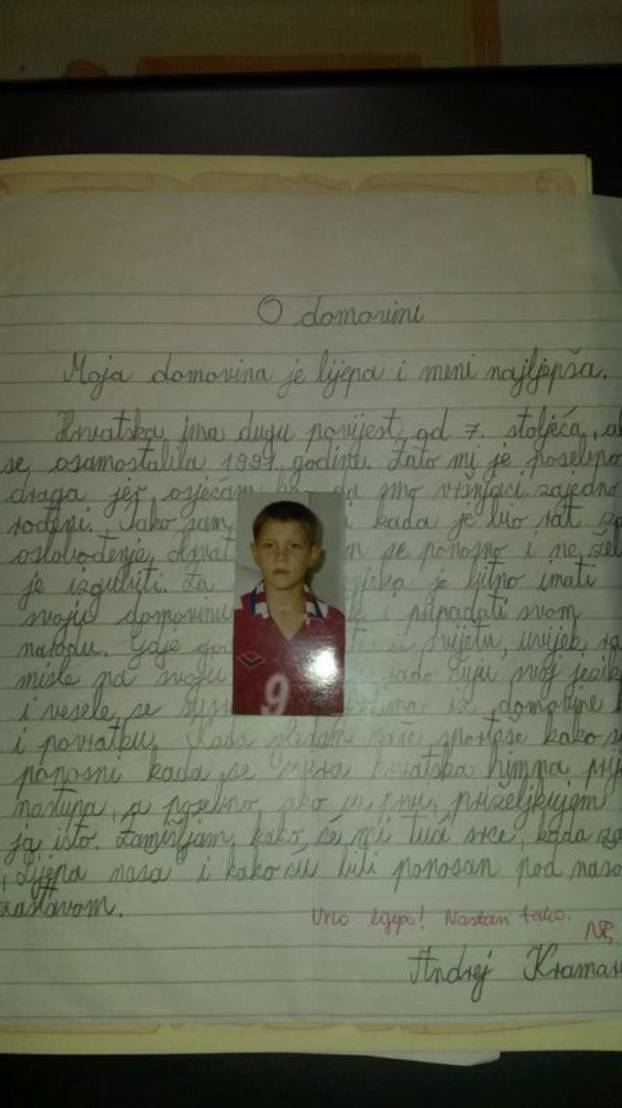 O domovini
Moja domovina je lijepa i meni najljepša.
Hrvatska ima dugu povijest od 7. stoljeća, a
se osamostalila 1991. godine. Zato mi je posebno
draga jer osjećam da smo vršnjaci, zajedno
rođeni. Iako sam i kada je bio rat za
oslobođenje se ponosno i ne žel
je izgubiti. Za je bitno imati
svoju domovinu i pripadati svom
narodu. Gdje god u svijetu, uvijek ra
misle na svoju rado čuju svoj jezik
i vesele se iz domovine
i povratku. Kada gledam naše sportaše kako s
ponosni kada se svira hrvatska himna prij
nastupa, a posebno ako su prvi, priželjkujem
ja isto. Zamišljam kako će mi tući srce kada
Lijepa naša i kako ću biti ponosan pod našo
zastavom.
Vrlo lijepo! Nastavi tako.
Andrej Kramar
9